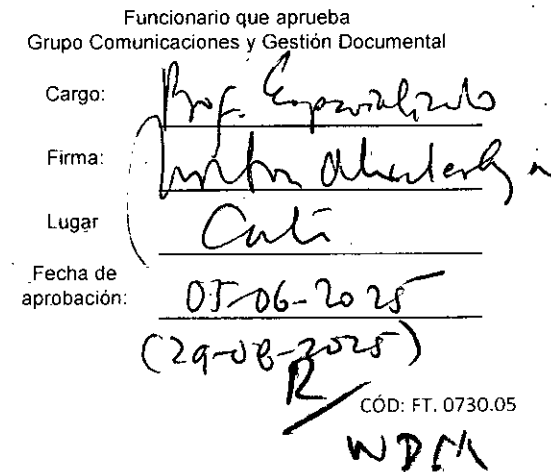 Funcionario que aprueba
Grupo Comunicaciones y Gestión Documental
Cargo: Prof. Especializado
Firma:
Lugar Cali
Fecha de aprobación: 05-06-2025
(29-08-2025)
R
CÓD: FT. 0730.05
WDM